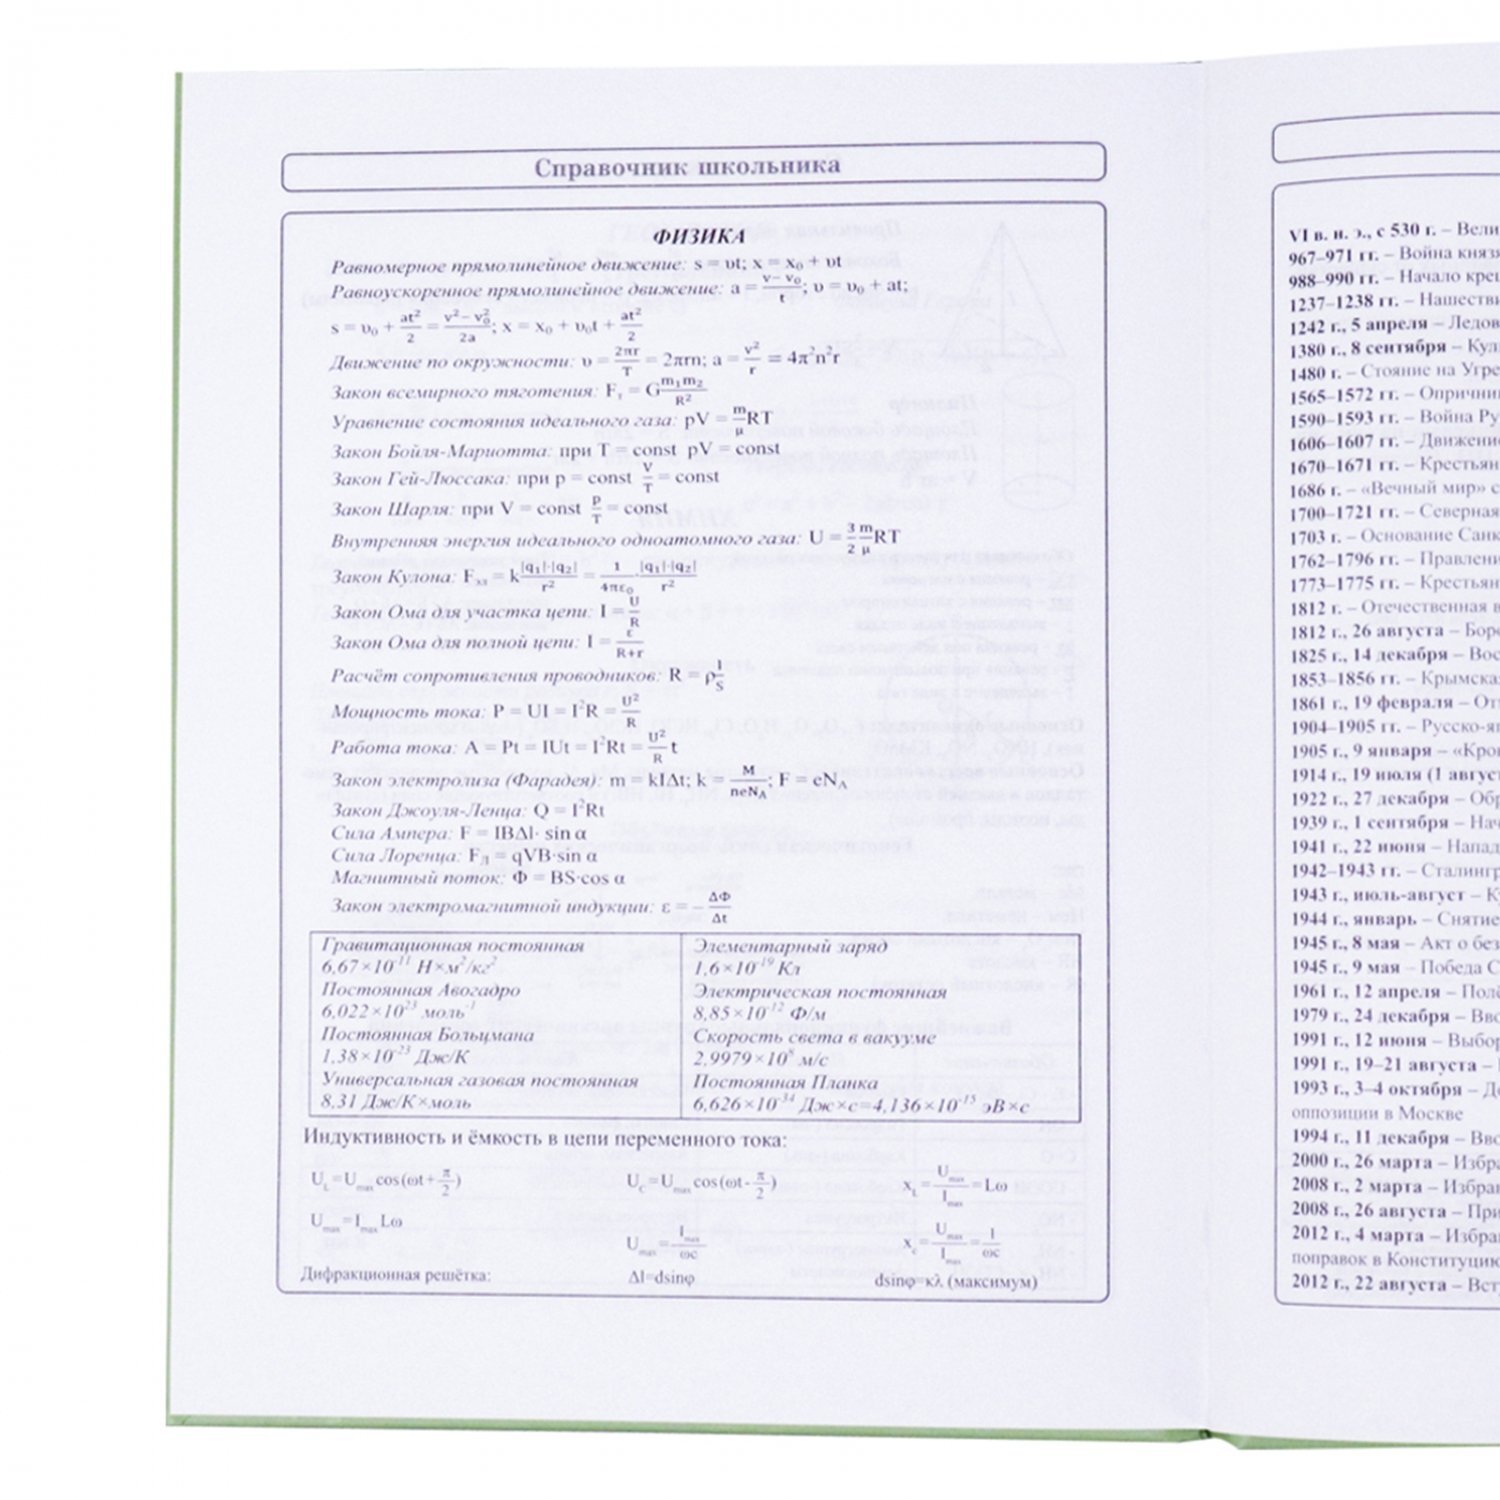 Справочник школьника
ФИЗИКА
Равномерное прямолинейное движение: s = υt; x = x₀ + υt
Равноускоренное прямолинейное движение: a = (v− v₀)/t; υ = υ₀ + at;
s = υ₀ + at²/2 = (v²− v₀²)/2a; x = x₀ + υ₀t + at²/2
Движение по окружности: υ = 2πr/T = 2πrn; a = v²/r = 4π²n²r
Закон всемирного тяготения: Fт = G m₁m₂/R²
Уравнение состояния идеального газа: pV = m/μ RT
Закон Бойля-Мариотта: при T = const pV = const
Закон Гей-Люссака: при p = const V/T = const
Закон Шарля: при V = const P/T = const
Внутренняя энергия идеального одноатомного газа: U = 3/2 m/μ RT
Закон Кулона: Fэл = k |q₁|·|q₂|/r² = 1/4πε₀ · |q₁|·|q₂|/r²
Закон Ома для участка цепи: I = U/R
Закон Ома для полной цепи: I = ε/R+r
Расчёт сопротивления проводников: R = ρ l/S
Мощность тока: P = UI = I²R = U²/R
Работа тока: A = Pt = IUt = I²Rt = U²/R t
Закон электролиза (Фарадея): m = kIΔt; k = M/neN_A; F = eN_A
Закон Джоуля-Ленца: Q = I²Rt
Сила Ампера: F = IBΔl· sin α
Сила Лоренца: Fл = qVB·sin α
Магнитный поток: Φ = BS·cos α
Закон электромагнитной индукции: ε = − ΔΦ/Δt
Гравитационная постоянная
6,67×10⁻¹¹ Н×м²/кг²
Постоянная Авогадро
6,022×10²³ моль⁻¹
Постоянная Больцмана
1,38×10⁻²³ Дж/К
Универсальная газовая постоянная
8,31 Дж/К×моль
Элементарный заряд
1,6×10⁻¹⁹ Кл
Электрическая постоянная
8,85×10⁻¹² Ф/м
Скорость света в вакууме
2,9979×10⁸ м/с
Постоянная Планка
6,626×10⁻³⁴ Дж×с=4,136×10⁻¹⁵ эВ×с
Индуктивность и ёмкость в цепи переменного тока:
U_L=U_max cos(ωt+π/2) U_C=U_max cos(ωt-π/2) x_L=U_max/I_max=Lω
U_max=I_max Lω U_max=I_max/ωc x_c=U_max/I_max=1/ωc
Дифракционная решётка: Δl=dsinφ dsinφ=κλ (максимум)
VI в. н. э., с 530 г. –
967–971 гг. – Война
988–990 гг. – Начало
1237–1238 гг. –
1242 г., 5 апреля –
1380 г., 8 сентября –
1480 г. – Стояние на
1565–1572 гг. –
1590–1593 гг. – Война
1606–1607 гг. –
1670–1671 гг. –
1686 г. – «Вечный мир» с
1700–1721 гг. – Северная
1703 г. – Основание
1762–1796 гг. –
1773–1775 гг. –
1812 г. – Отечественная
1812 г., 26 августа –
1825 г., 14 декабря –
1853–1856 гг. –
1861 г., 19 февраля –
1904–1905 гг. –
1905 г., 9 января –
1914 г., 19 июля (1
1922 г., 27 декабря –
1939 г., 1 сентября –
1941 г., 22 июня –
1942–1943 гг. –
1943 г., июль-август –
1944 г., январь – Снятие
1945 г., 8 мая – Акт о
1945 г., 9 мая – Победа
1961 г., 12 апреля –
1979 г., 24 декабря –
1991 г., 12 июня –
1991 г., 19–21 августа –
1993 г., 3–4 октября –
оппозиции в Москве
1994 г., 11 декабря –
2000 г., 26 марта –
2008 г., 2 марта –
2008 г., 26 августа –
2012 г., 4 марта –
поправок в
2012 г., 22 августа –